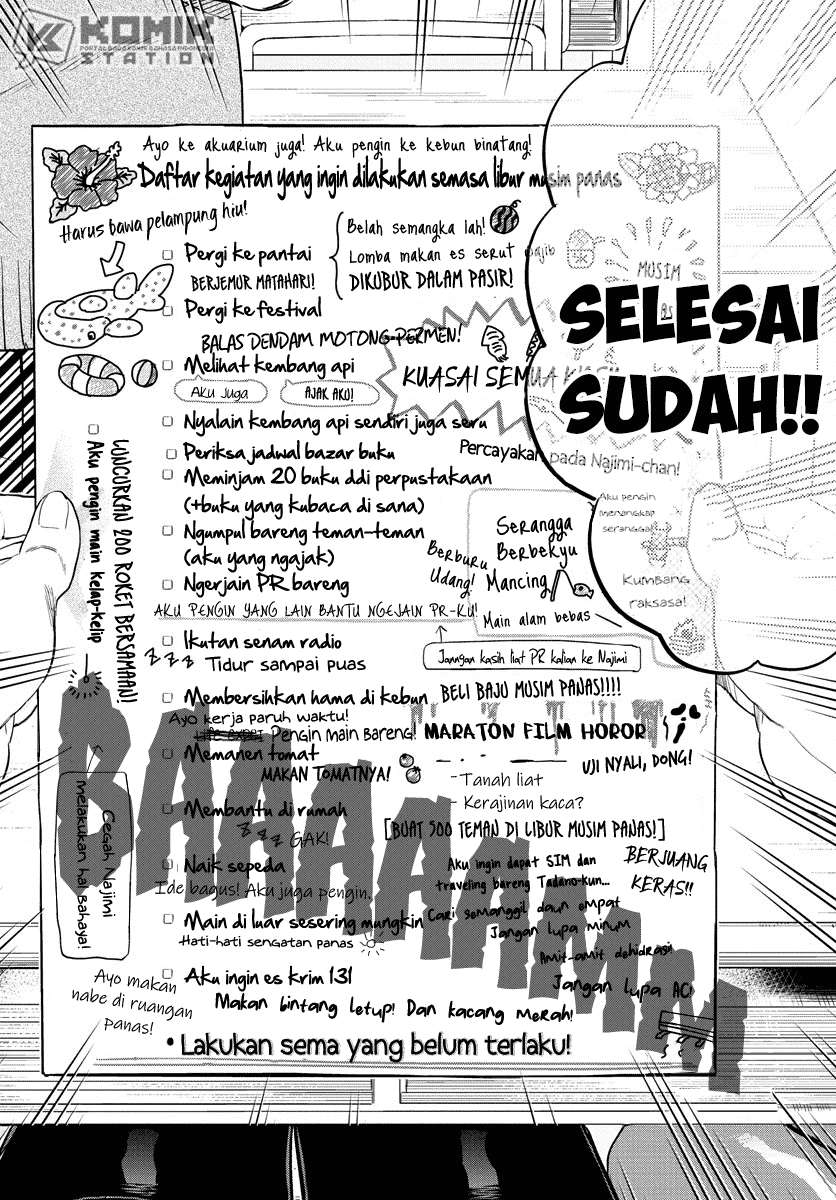 KOMIK
STATION
Ayo ke akuarium juga! Aku pengin ke kebun binatang!
Daftar kegiatan yang ingin dilakukan semasa libur musim panas
Harus bawa pelampung hiu!
Pergi ke pantai
BERJEMUR MATAHARI!
Belah semangka lah!
Lomba makan es serut wajib
DIKUBUR DALAM PASIR!
MUSIM
SELESAI
SUDAH!!
Pergi ke festival
BALAS DENDAM MOTONG PERMEN!
KUASAI SEMUA
Melihat kembang api
Aku juga
AJAK AKU!
Nyalain kembang api sendiri juga seru
Periksa jadwal bazar buku
Percayakan pada Najimi-chan!
Meminjam 20 buku ddi perpustakaan
(+buku yang kubaca di sana)
Aku pengin
menangkap
serangga!
Ngumpul bareng teman-teman
(aku yang ngajak)
Serangga
Berbekyu
Mancing
Berburu
Udang!
Kumbang
raksasa!
Main alam bebas
Ngerjain PR bareng
AKU PENGIN YANG LAIN BANTU NGEJAIN PR-KU!
Janngan kasih liat PR kalian ke Najimi
LUNCURKAN 200 ROKET BERSAMAAN!
Aku pengin main kelap-kelip
Ikutan senam radio
z z z Tidur sampai puas
Membersihkan hama di kebun
BELI BAJU MUSIM PANAS!!!!
Ayo kerja paruh waktu!
Pengin main bareng!
MARATON FILM HOROR
UJI NYALI, DONG!
Memanen tomat
MAKAN TOMATNYA!
- Tanah liat
- Kerajinan kaca?
Membantu di rumah
z z z GAK!
[BUAT 500 TEMAN DI LIBUR MUSIM PANAS!]
Cegah Najimi
melakukan hal bahaya!
Naik sepeda
Ide bagus! Aku juga pengin.
Aku ingin dapat SIM dan
traveling bareng Tadano-kun...
BERJUANG
KERAS!!
Main di luar sesering mungkin
Hati-hati sengatan panas
Cari semanggil daun empat
Jangan lupa minum
Amit-amit dehidrasi!
Jangan lupa AC!
Aku ingin es krim 131
Ayo makan
nabe di ruangan
panas!
Makan bintang letup! Dan kacang merah!
• Lakukan sema yang belum terlaku!
BAAAAAAMM!!